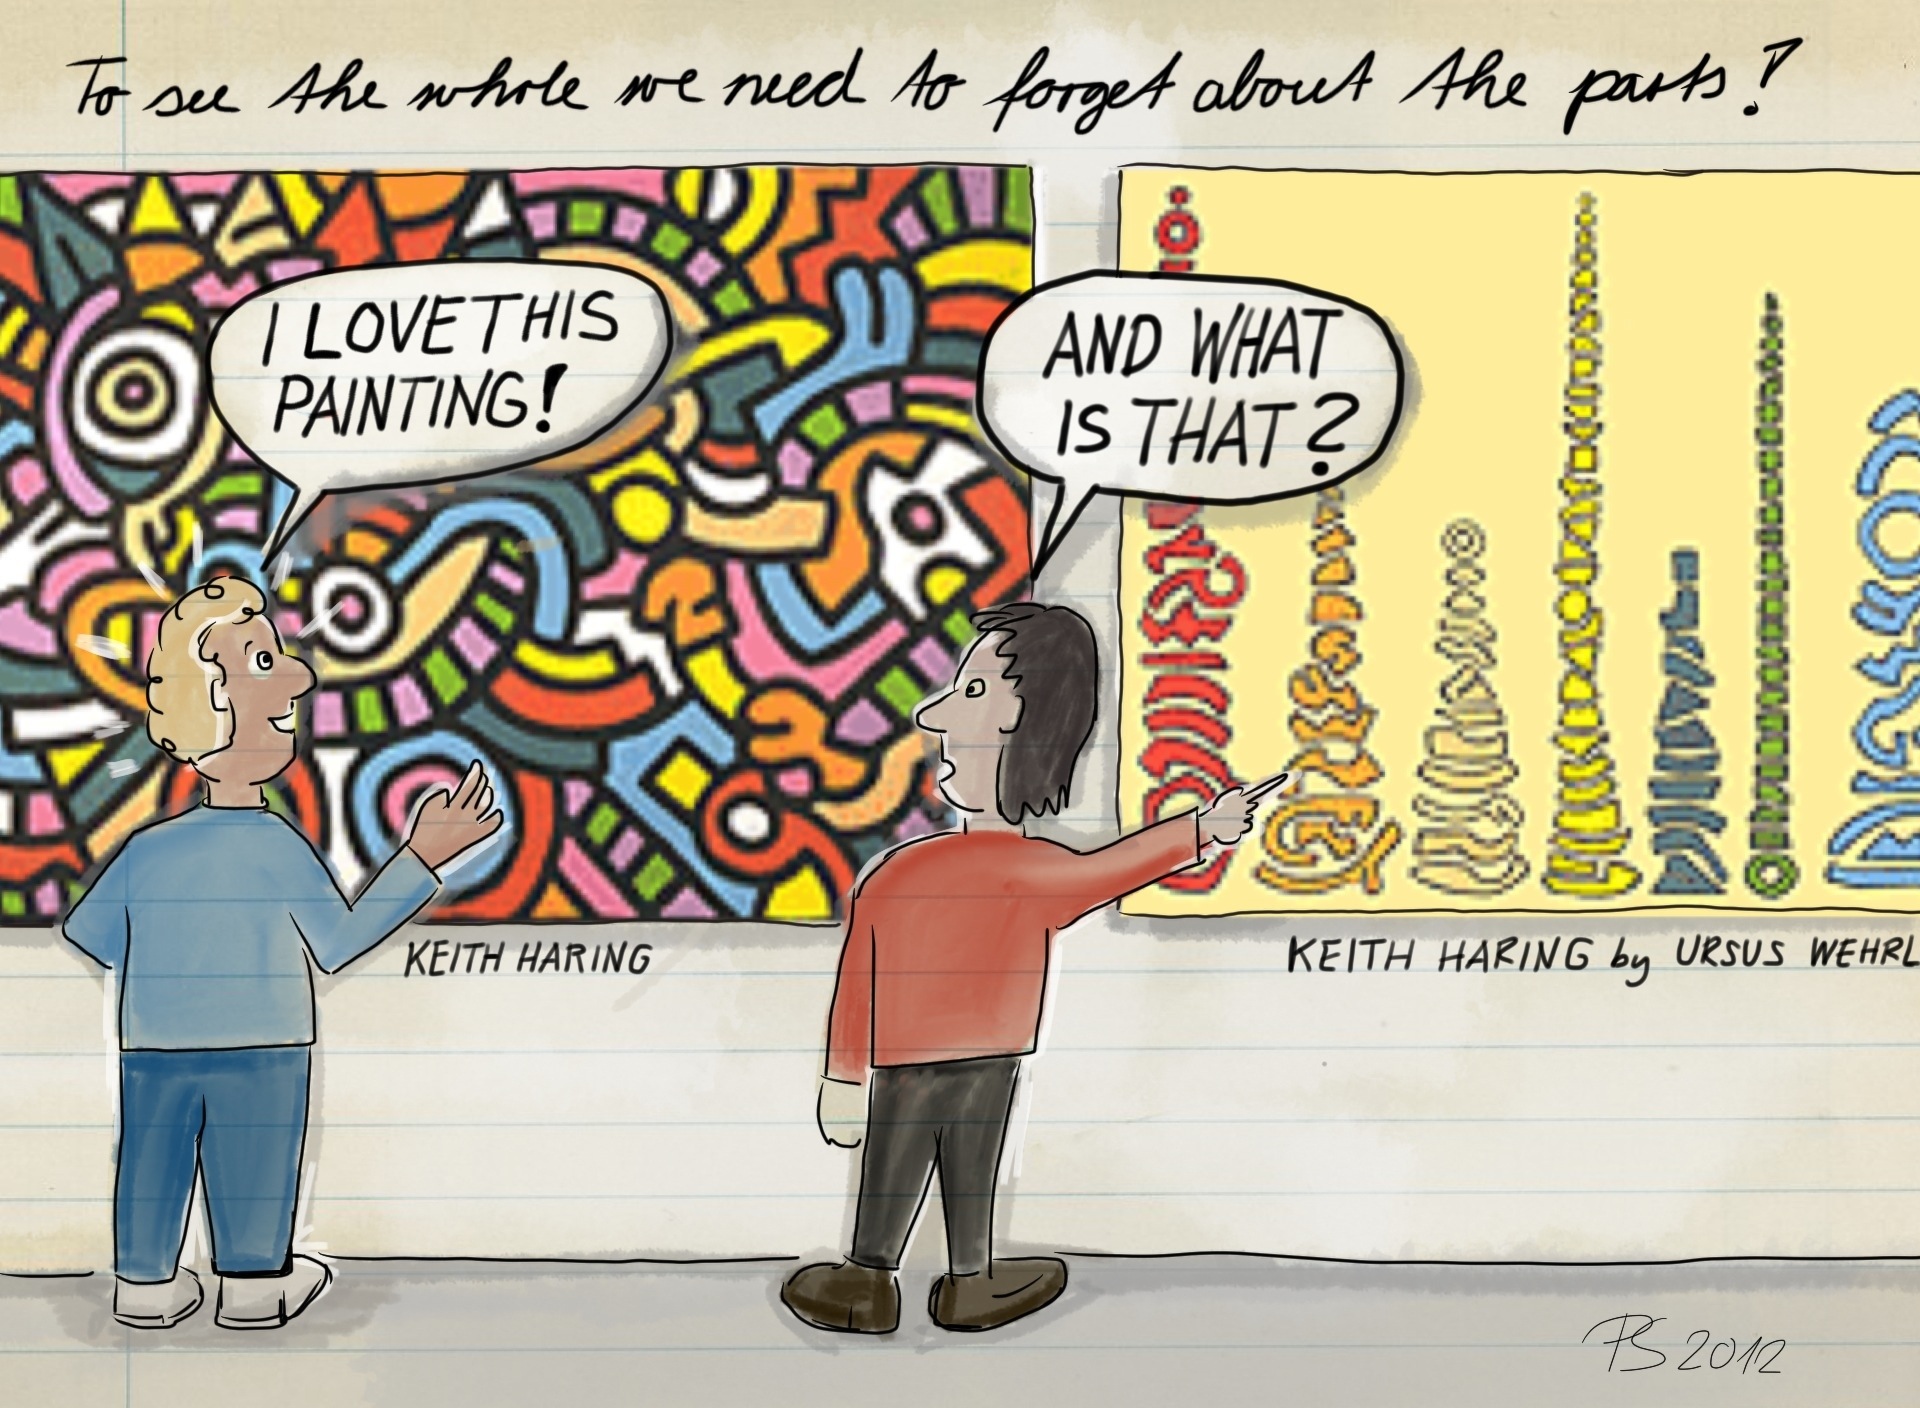 To see the whole we need to forget about the parts?
I LOVE THIS
PAINTING!
AND WHAT
IS THAT?
KEITH HARING
KEITH HARING by URSUS WEHRL
PS 2012